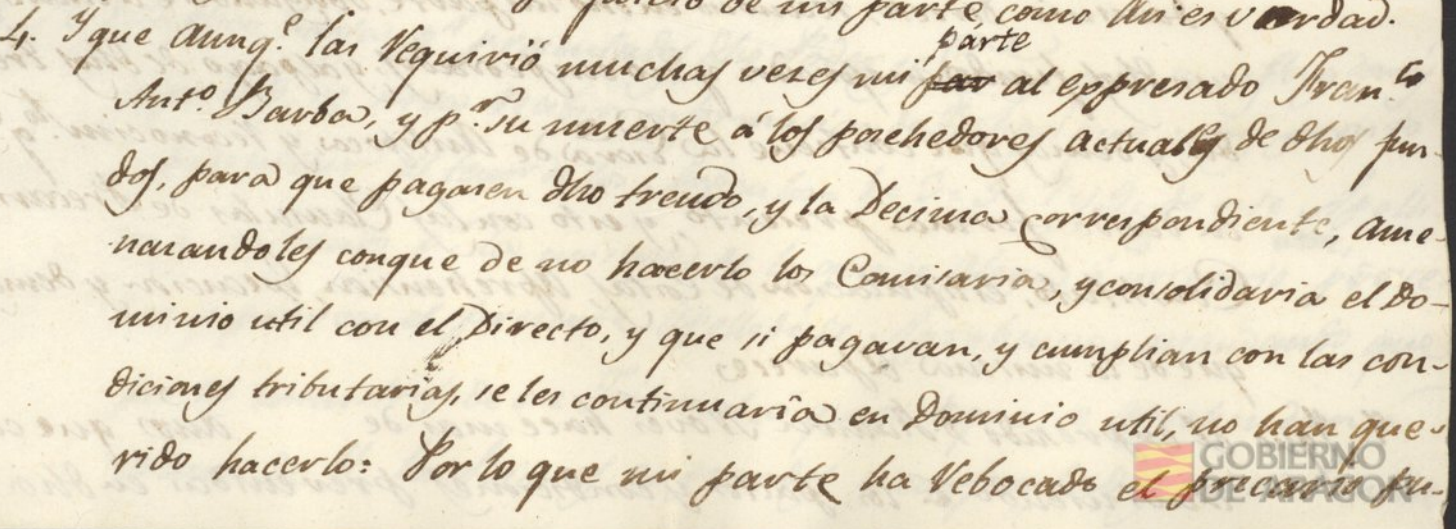 juicio de mi parte, como asi es verdad.
4. Y que aunq.e las requirió muchas vezes mi parte al expresado Fran.co
Ant.o Barba, y p.r su muerte á los poshedores actuales de dhos fun-
dos, para que pagasen dho treudo, y la Decima correspondiente, ame-
nazandoles conque de no hacerlo los Comisaria, y consolidaria el Do-
minio util con el Directo, y que si pagavan, y cumplian con las con-
diciones tributarias, se les continuaria en Dominio util, no han que-
rido hacerlo: Por lo que mi parte ha rebocado el precario pu-
GOBIERNO
DE ARAGON